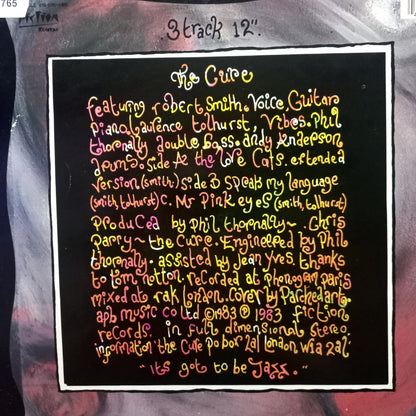 765
FICTION
RECORDS
3 track 12".
The Cure
featuring robert Smith. Voice. Guitar
Piano. Laurence tolhurst, Vibes. Phil
thornally double bass. andy Anderson
drums. side A the love Cats. extended
version (smith.) side B speak my language
(smith, tolhurst) c. Mr Pink eyes (smith, tolhurst)
produced by phil thornally ~. Chris
parry ~ the Cure. Engineered by Phil
thornally. assisted by Jean Yves. thanks
to tom notton. recorded at phonogram paris
mixed at rak london. cover by Parched art.
apb music co ltd ©1983 ℗ 1983 fiction
records. in full dimensional stereo.
information 'the Cure po box 2al london w1a 2al'
"it's got to be Jazz."